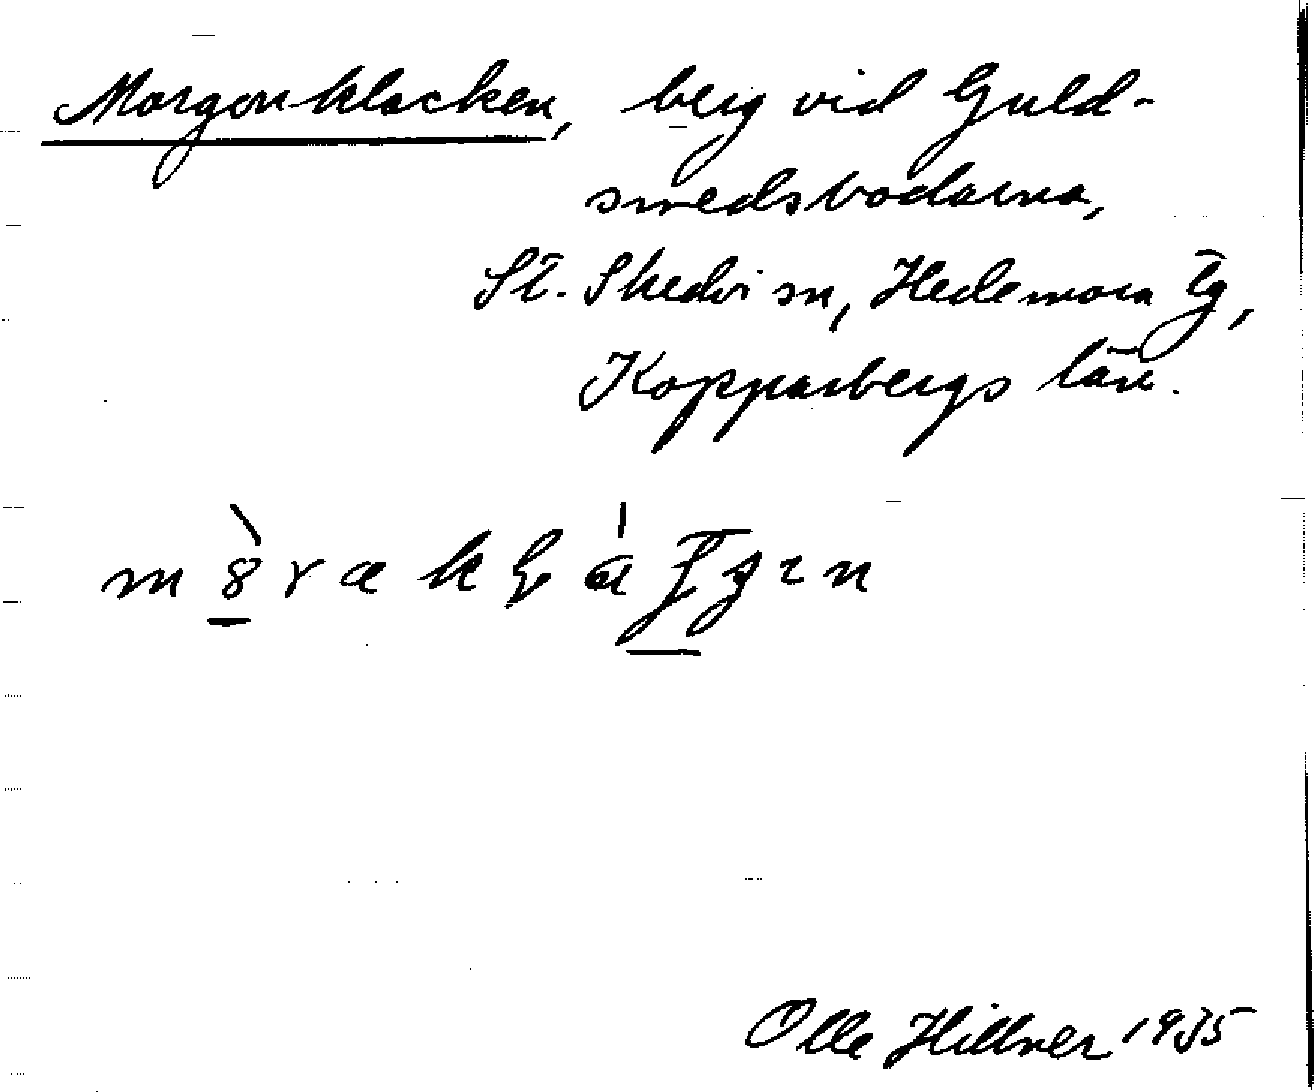 Morgonklacken, berg vid Guld-
smedsbodarna,
St. Skedvi sn, Hedemora tg,
Kopparbergs län.
Olle Hillner 1935